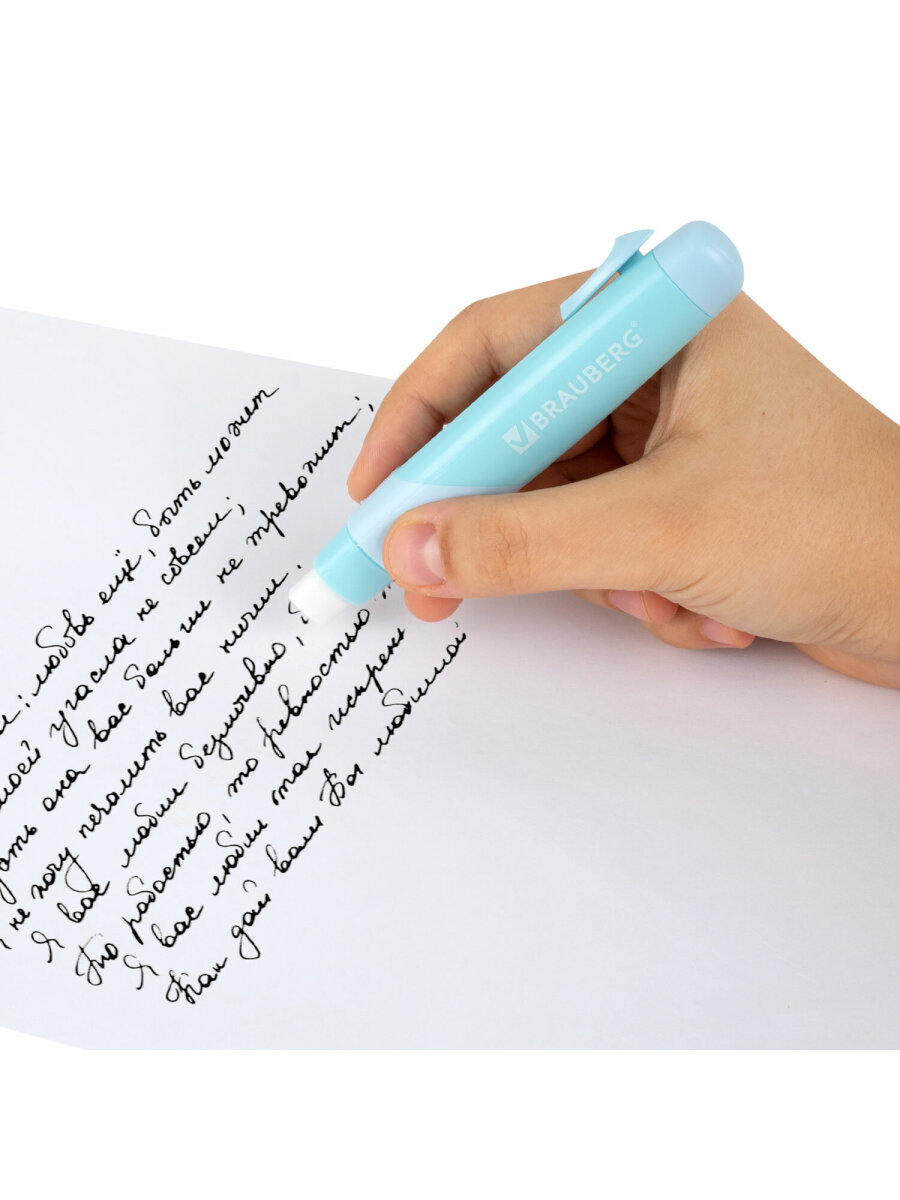 любовь ещё, быть может
моей угасла не совсем;
она вас больше не тревожит;
не хочу печалить вас ничем;
Я вас любил безмолвно,
То робостью то ревностью
Я вас любил так искрен
Как дай вам Бог любимой
BRAUBERG®